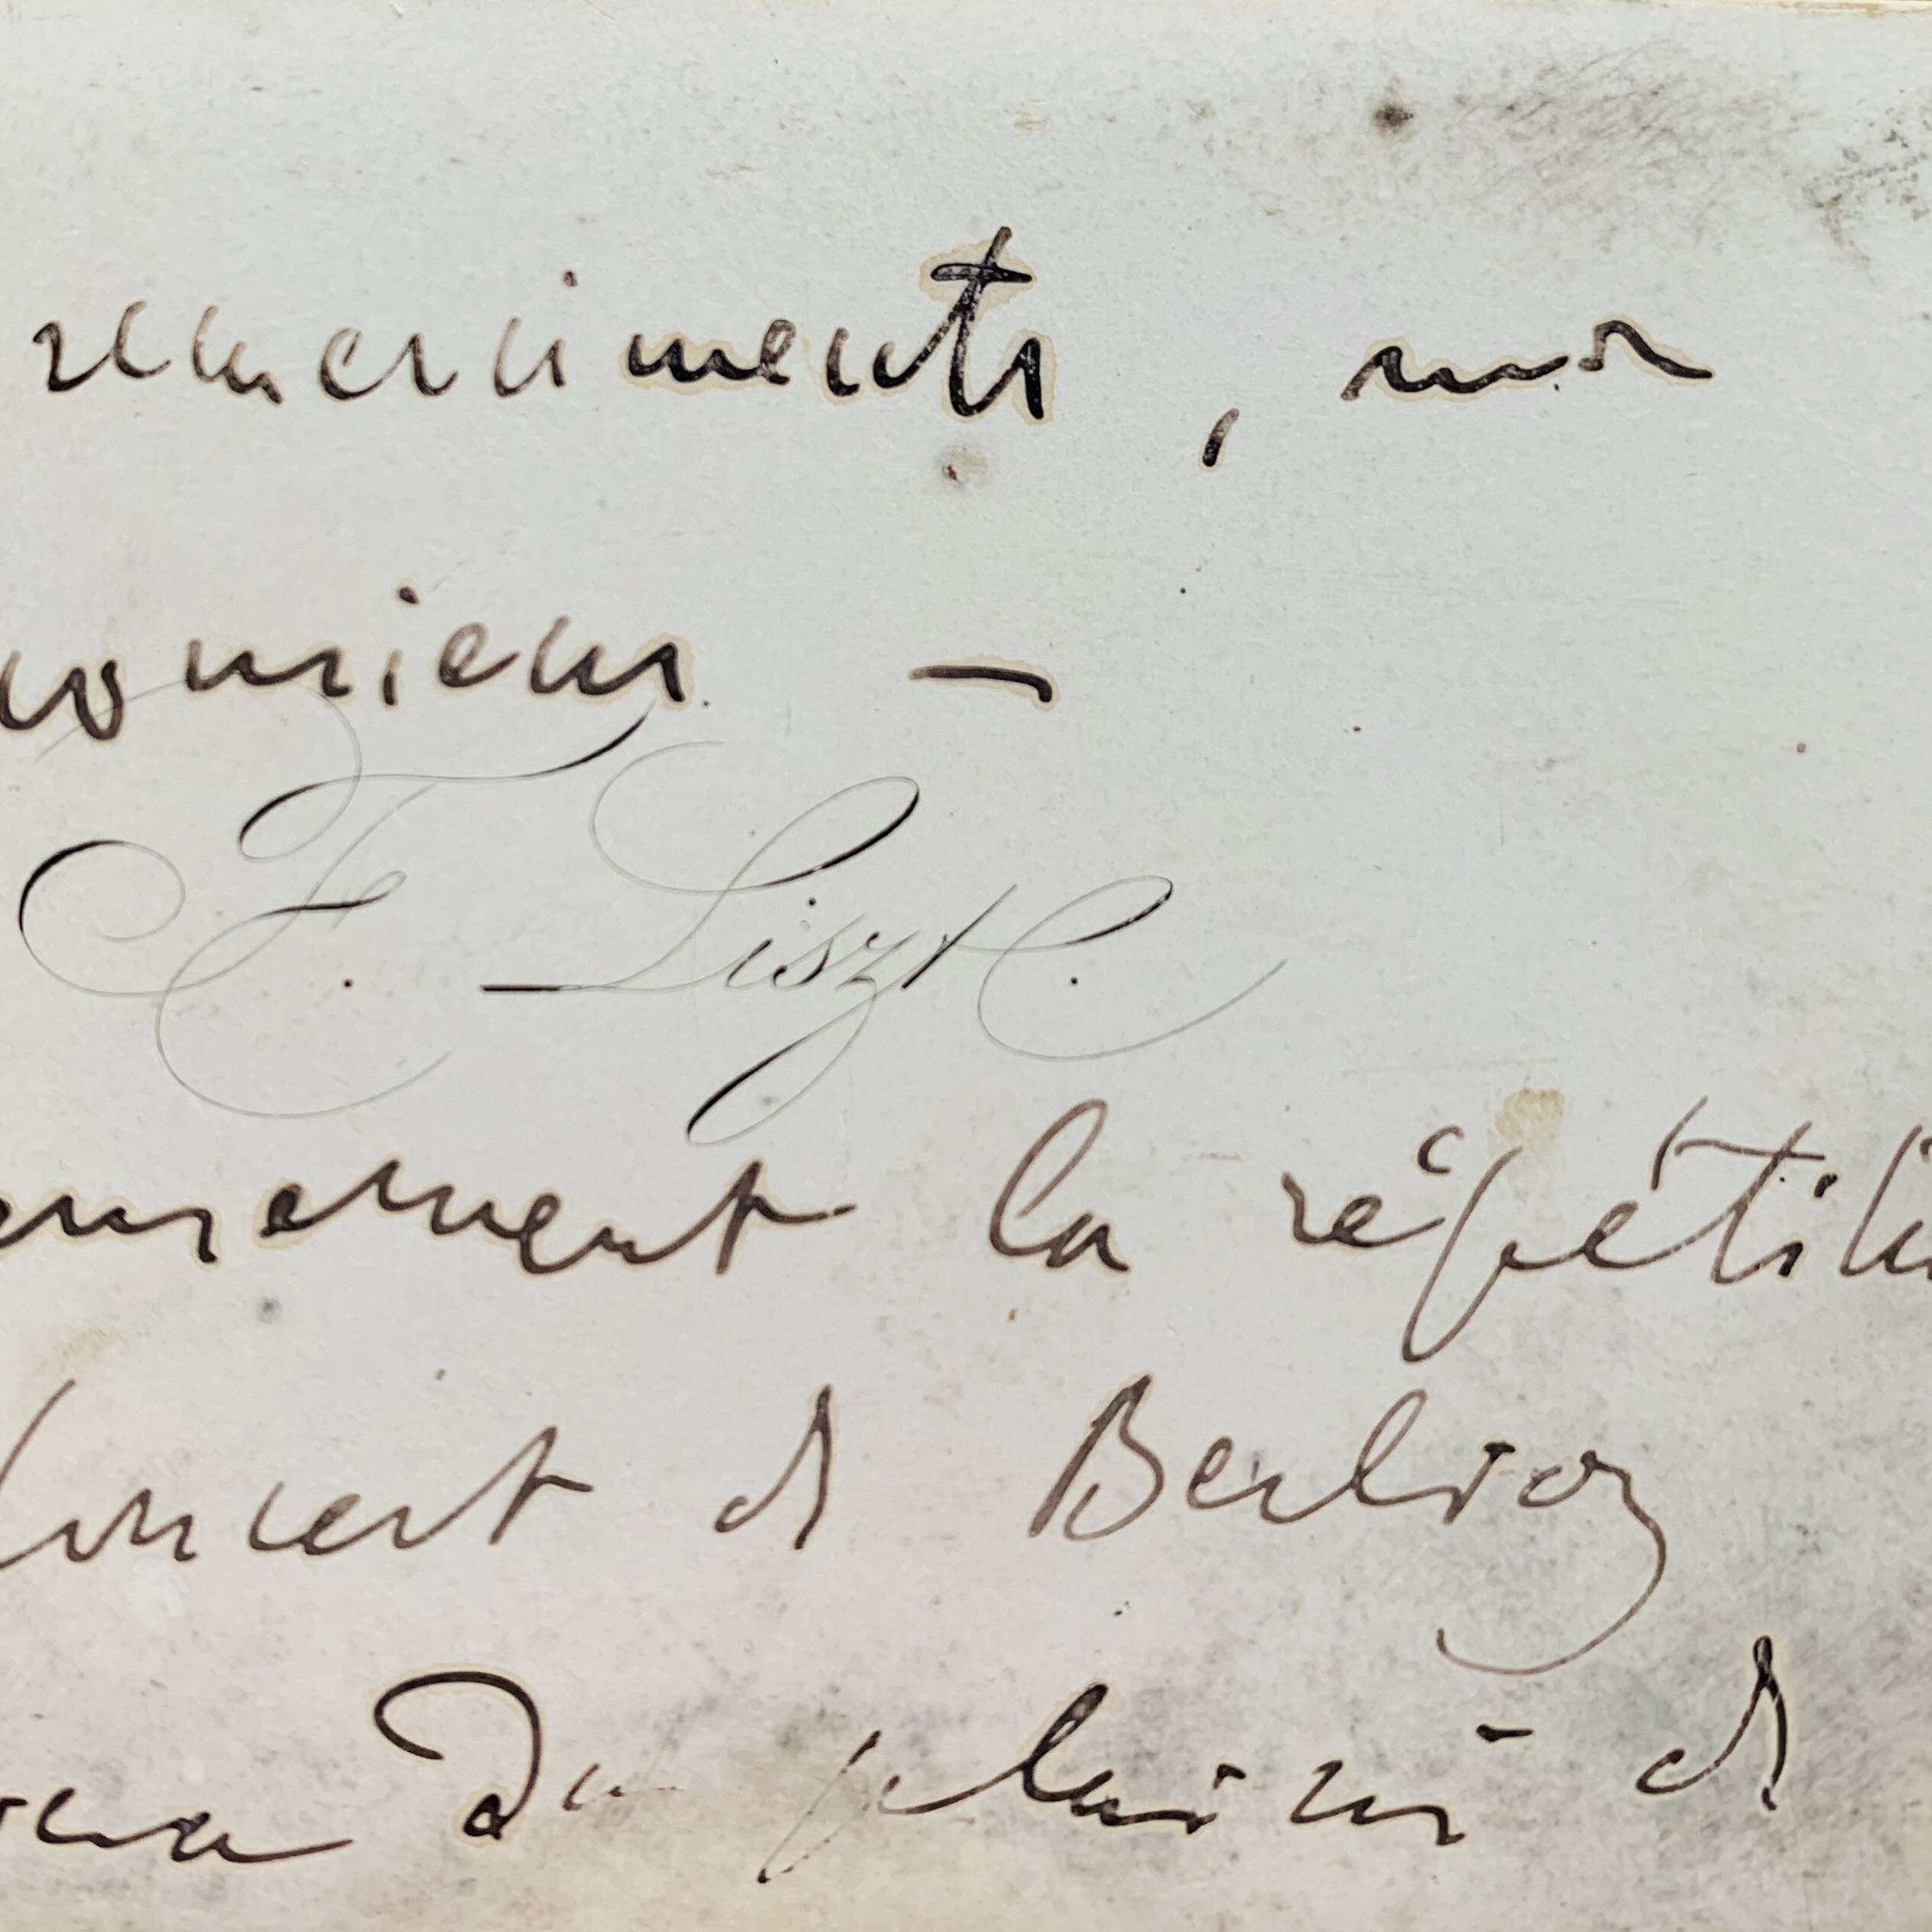 remerciments, mon
Monsieur —
F. Liszt.
la répétiti
Concert de Berlioz
du plaisir de